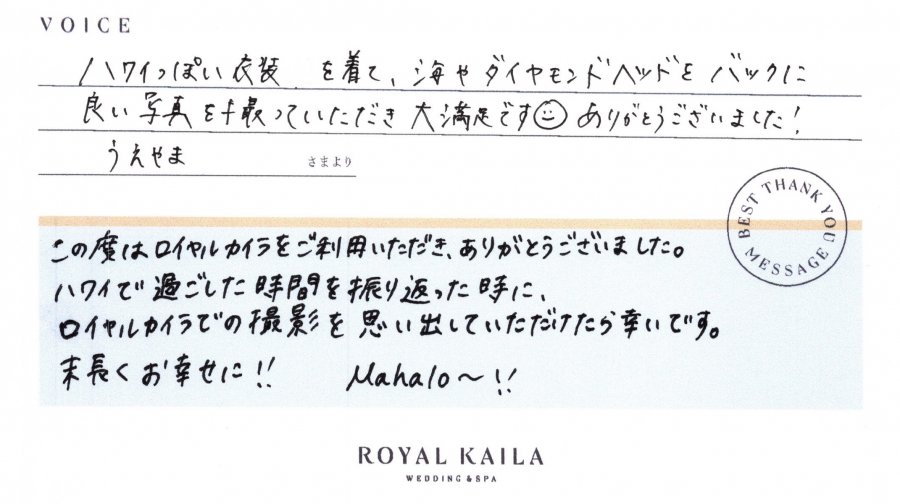 VOICE
ハワイっぽい衣装 を着て、海やダイヤモンドヘッドをバックに
良い写真を撮っていただき大満足です☺ありがとうございました!
うえやま さまより
BEST THANK YOU MESSAGE
この度はロイヤルカイラをご利用いただき、ありがとうございました。
ハワイで過ごした時間を振り返った時に、
ロイヤルカイラでの撮影を思い出していただけたら幸いです。
末長くお幸せに!! Mahalo〜!!
ROYAL KAILA
WEDDING & SPA